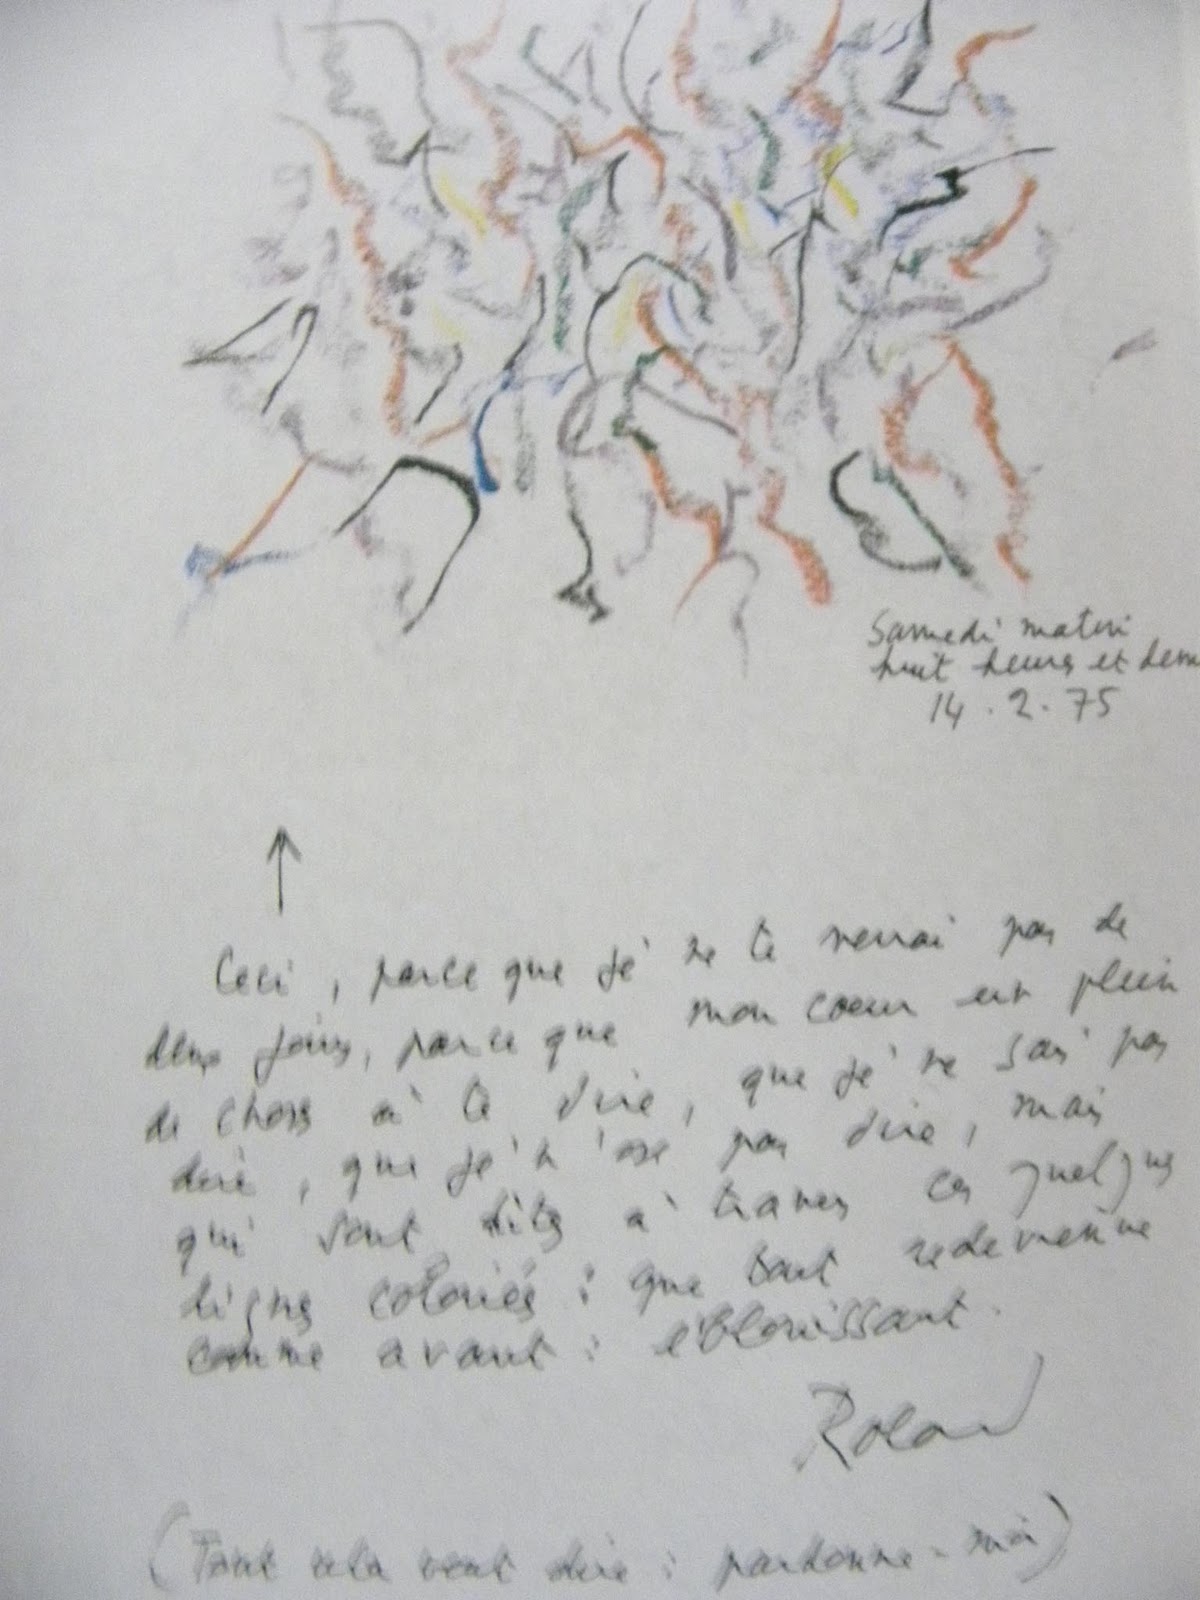 Samedi matin
huit heures et dem
14.2.75
↑
Ceci, parce que je ne te verrai pas de
deux jours, parce que mon coeur est plein
de choses à te dire, que je ne sais pas
dire, que je n'ose pas dire, mais
qui sont dites à travers ces quelques
lignes coloriées : que tout redevienne
comme avant : éblouissant.
Roland
(Tout cela veut dire : pardonne-moi)